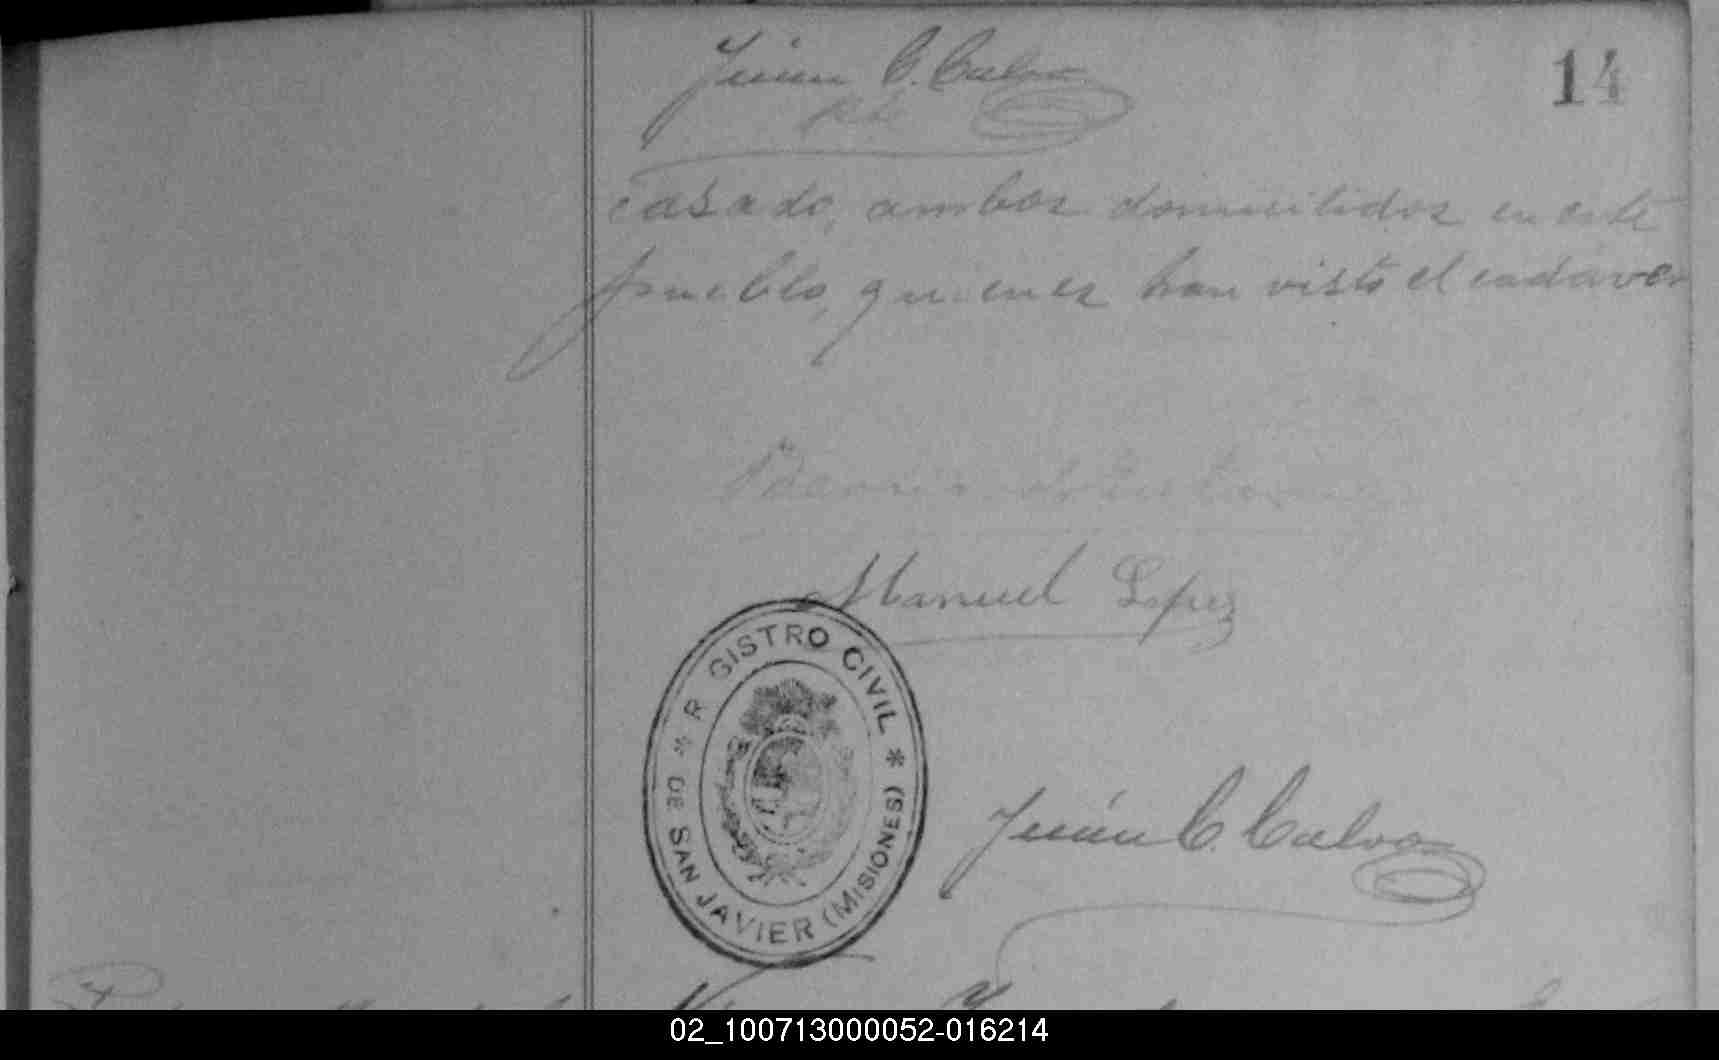 Juan C. Calvo
14
casado, ambos domicilidos en este
pueblo, quienes han visto el cadaver
Manuel Lopez
R GISTRO CIVIL
DE SAN JAVIER (MISIONES)
Juan C. Calvo
02_100713000052-016214